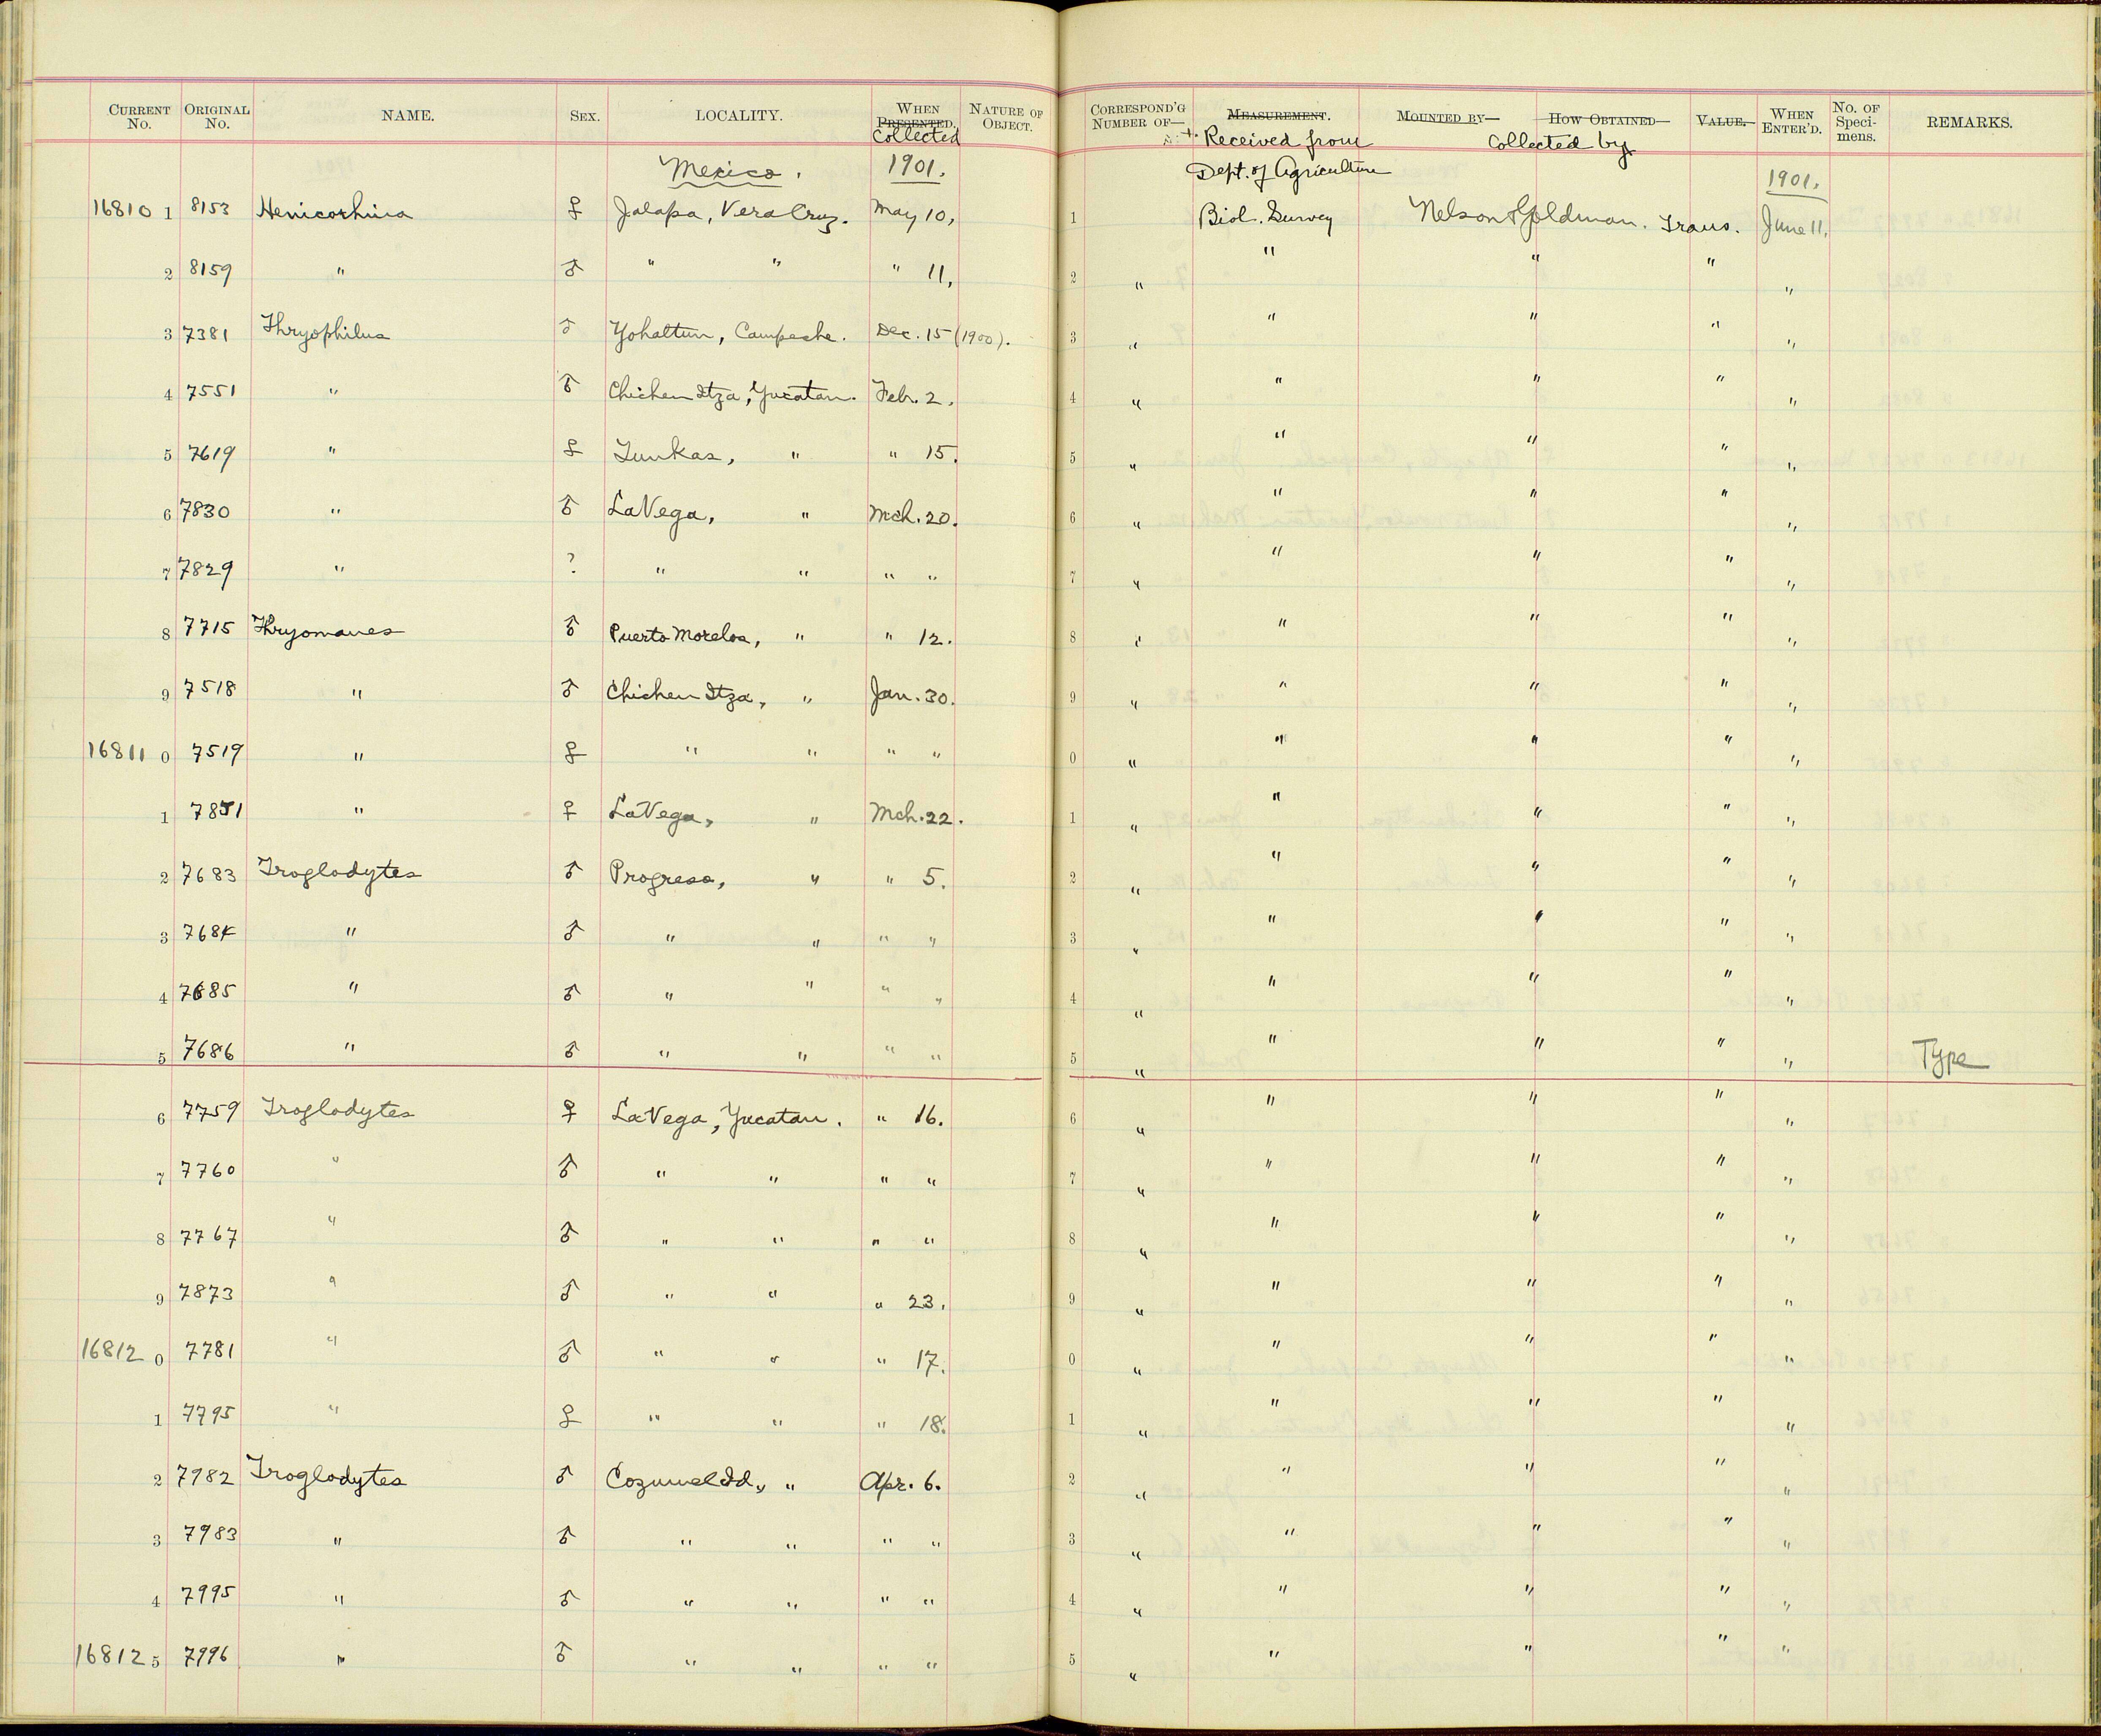 CURRENT No. ORIGINAL No. NAME. SEX. LOCALITY. WHEN PRESENTED. Collected NATURE OF OBJECT. CORRESPOND'G NUMBER OF— MEASUREMENT. Received from MOUNTED BY— HOW OBTAINED— Collected by VALUE. WHEN ENTER'D. No. OF Specimens. REMARKS.
Mexico. 1901. Dept. of Agriculture 1901.
16810 1 8153 Henicorhina ♀ Jalapa, Vera Cruz. May 10, 1 Biol. Survey Nelson & Goldman. Trans. June 11.
2 8159 " ♂ " " " 11, 2 " " " " "
3 7381 Thryophilus ♂ Yohaltun, Campeche. Dec. 15 (1900). 3 " " " " "
4 7551 " ♂ Chichen Itza, Yucatan. Feb. 2. 4 " " " " "
5 7619 " ♀ Tunkas, " " 15. 5 " " " " "
6 7830 " ♂ La Vega, " Mch. 20. 6 " " " " "
7 7829 " ? " " " " 7 " " " " "
8 7715 Thryomanes ♂ Puerto Morelos, " " 12. 8 " " " " "
9 7518 " ♂ Chichen Itza, " Jan. 30. 9 " " " " "
16811 0 7519 " ♀ " " " " 0 " " " " "
1 7851 " ♀ La Vega, " Mch. 22. 1 " " " " "
2 7683 Troglodytes ♂ Progreso, " " 5. 2 " " " " "
3 7684 " ♂ " " " " 3 " " " " "
4 7685 " ♂ " " " " 4 " " " " "
5 7686 " ♂ " " " " 5 " " " " " Type
6 7759 Troglodytes ♀ La Vega, Yucatan. " 16. 6 " " " " "
7 7760 " ♂ " " " " 7 " " " " "
8 7767 " ♂ " " " " 8 " " " " "
9 7873 " ♂ " " " 23. 9 " " " " "
16812 0 7781 " ♂ " " " 17. 0 " " " " "
1 7795 " ♀ " " " 18. 1 " " " " "
2 7982 Troglodytes ♂ Cozumel Id., " Apr. 6. 2 " " " " "
3 7983 " ♂ " " " " 3 " " " " "
4 7995 " ♂ " " " " 4 " " " " "
16812 5 7996 " ♂ " " " " 5 " " " " "